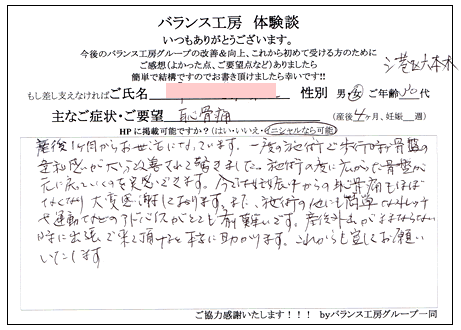 バランス工房 体験談
いつもありがとうございます。
今後のバランス工房グループの改善&向上、これから初めて受ける方のために
ご感想(よかった点、ご要望点など)ありましたら
簡単で結構ですのでお書き頂けましたら幸いです!!
港区六本木
もし差し支えなければご氏名 性別 男・女 ご年齢 代
主なご症状・ご要望 恥骨痛 (産後4ヶ月、妊娠 週)
HPに掲載可能ですか?(はい・いいえ・イニシャルなら可能)
産後1ヶ月からお世話になっています。一度の施術で歩行時骨盤の
違和感が大分改善されて驚きました。施術の度に広がった骨盤が
元に戻っていくのを実感できます。今では妊娠中からの恥骨痛もほぼ
なくなり大変感謝しております。また、施術の他にも簡単なストレッチ
や運動などのアドバイスがとても有難いです。産後外出がままならない
時に出張で来て頂けると本当に助かります。これからも宜しくお願い
いたします
ご協力感謝いたします!!! byバランス工房グループ一同